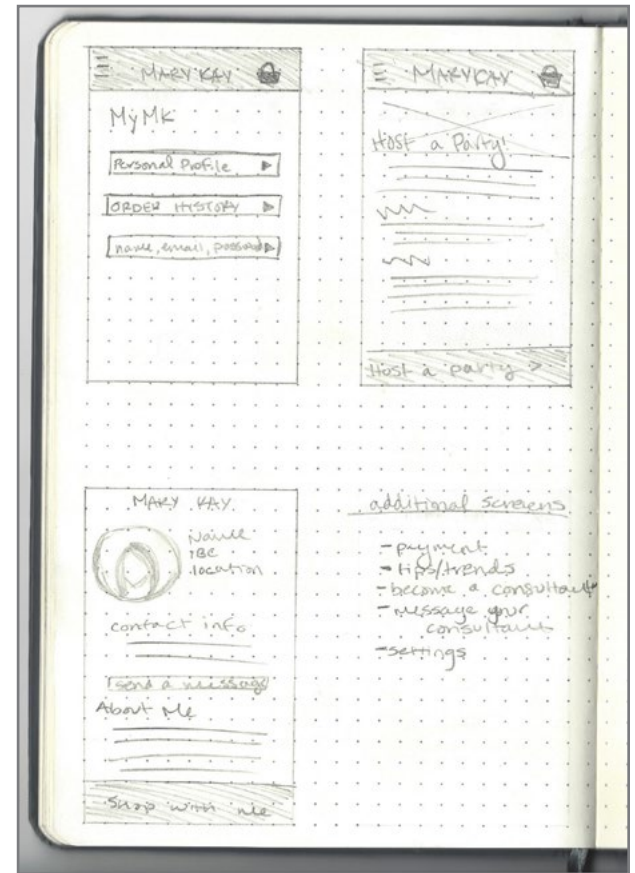 MARY KAY
MyMK
Personal Profile
ORDER HISTORY
name, email, password
MARY KAY
Host a Party!
Host a party >
MARY KAY
Name
IBC
location
contact info
send a message
About Me
Shop with me
additional screens
- payment
- tips/trends
- become a consultant
- message your
consultant
- settings